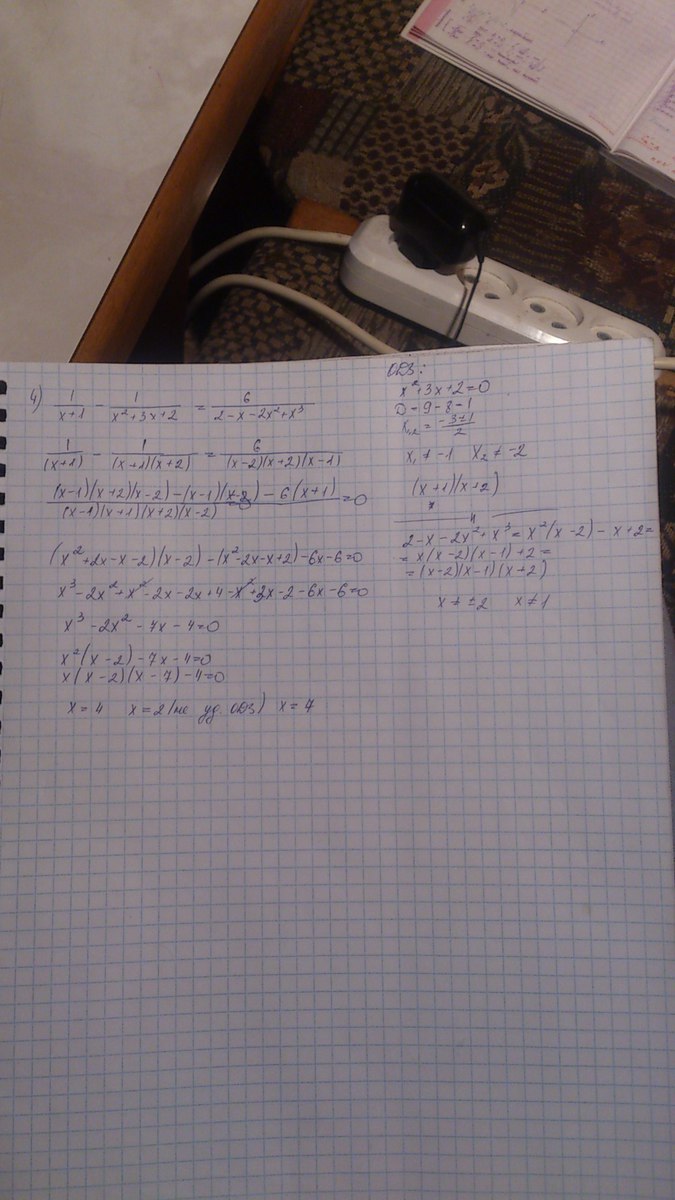 4) 1/(x+1) - 1/(x²+3x+2) = 6/(2-x-2x²+x³)
1/(x+1) - 1/((x+1)(x+2)) = 6/((x-2)(x+2)(x-1))
((x-1)(x+2)(x-2)-(x-1)(x-2)-6(x+1))/((x-1)(x+1)(x+2)(x-2)) =0
(x²+2x-x-2)(x-2)-(x²-2x-x+2)-6x-6=0
x³-2x²+x²-2x-2x+4-x²+3x-2-6x-6=0
x³-2x²-7x-4=0
x²(x-2)-7x-4=0
x(x-2)(x-7)-4=0
x=4 x=2 (не уд. ОДЗ) x=7
ОДЗ:
x²+3x+2=0
D=9-8=1
x₁,₂ = (-3±1)/2
x₁≠-1 x₂≠-2
(x+1)(x+2)
2-x-2x²+x³=x²(x-2)-x+2=
=x(x-2)(x-1)+2=
=(x-2)(x-1)(x+2)
x≠±2 x≠1